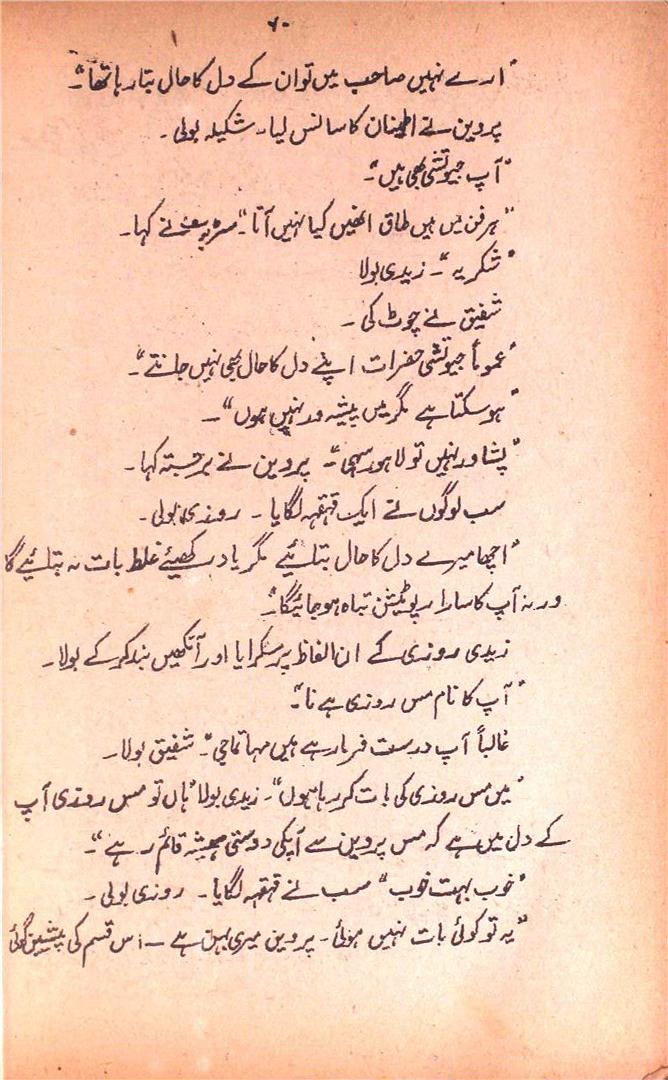 ۷۰
"ارے نہیں صاحب میں تو ان کے دل کا حال بتا رہا تھا"۔
پروین نے اطمنان کا سانس لیا۔ شکیلہ بولی۔
"آپ جیوتشی بھی ہیں"۔
"ہر فن میں ہیں طاق انھیں کیا نہیں آتا"۔ نے کہا۔
"شکریہ"۔ زیدی بولا
شفیق نے چوٹ کی۔
"عموماً جیوتشی حضرات اپنے دل کا حال بھی نہیں جانتے"۔
"ہو سکتا ہے مگر میں پیشہ ور نہیں ہوں"۔
"پشاور نہیں تو لاہور سہی"۔ پروین نے برجستہ کہا۔
سب لوگوں نے ایک قہقہہ لگایا۔ روزی بولی۔
"اچھا میرے دل کا حال بتائیے مگر یاد رکھیئے غلط بات نہ بتائیے گا
ورنہ آپ کا سارا ریوٹیشن تباہ ہو جائیگا"۔
زیدی روزی کے ان الفاظ پر مسکرایا اور آنکھیں بند کر کے بولا۔
"آپ کا نام مس روزی ہے نا"۔
غالباً آپ درست فرما رہے ہیں مہاتما جی"۔ شفیق بولا۔
"میں مس روزی کی بات کر رہا ہوں"۔ زیدی بولا "ہاں تو مس روزی آپ
کے دل میں ہے کہ مس پروین سے آپکی دوستی ہمیشہ قائم رہے"۔
"خوب بہت خوب" سب نے قہقہہ لگایا۔ روزی بولی۔
"یہ تو کوئی بات نہیں ہوئی۔ پروین میری بہن ہے ۔ اس قسم کی پیشین گوئی